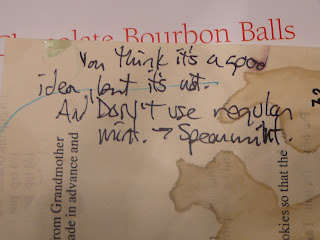 Chocolate Bourbon Balls
You think it's a good
idea, but it's not.
AND DON'T use regular
mint. → Spearmint.
32
rom Grandmother
ade in advance and
okies so that the